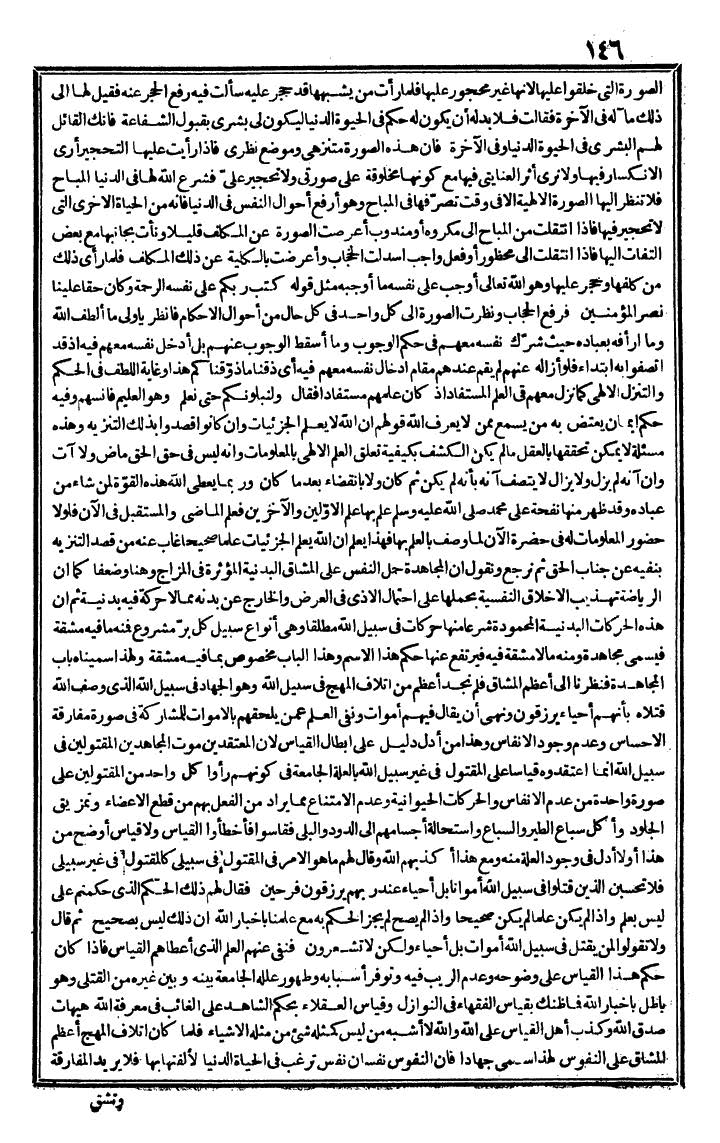 ١٤٦
الصورة التى خلقوا عليها لانها غير محجور عليها فلما رأت من يشبهها قد حجر عليه سألت فيه رفع الحجر عنه فقيل لها الى
ذلك مآله فى الآخرة فقالت فلا بد له أن يكون له حكم فى الحيوة الدنيا ليكون لى بشرى بقبول الشفاعة فانك القائل
لهم البشرى فى الحيوة الدنيا وفى الآخرة فان هذه الصورة متنزهى وموضع نظرى فاذا رأيت عليها التحجير أرى
الانكسار فيها ولا ترى أثر العناية فيها مع كونها مخلوقة على صورتى ولا تحجير علىّ فشرع الله لها فى الدنيا المباح
فلا تنظر اليها الصورة الالهية الا فى وقت تصرّفها فى المباح وهو أرفع أحوال النفس فى الدنيا فانه من الحياة الاخرى التى
لا تحجير فيها فاذا انتقلت من المباح الى مكروه أو مندوب أعرضت الصورة عن المكلف قليلا ونأت بجانبها مع بعض
التفات اليها فاذا انتقلت الى محظور أو فعل واجب اسدلت الحجاب وأعرضت بالكلية عن ذلك المكلف فلما رأى ذلك
من كلفها وحجر عليها وهو الله تعالى أوجب على نفسه ما أوجبه مثل قوله كتب ربكم على نفسه الرحمة وكان حقا علينا
نصر المؤمنين فرفع الحجاب ونظرت الصورة الى كل واحد فى كل حال من أحوال الاحكام فانظر ياولى ما ألطف الله
وما ارأفه بعباده حيث شرّك نفسه معهم فى حكم الوجوب وما أسقط الوجوب عنهم بل أدخل نفسه معهم فيه اذ قد
اتصفوا به ابتداء فلو أزاله عنهم لم يقم عندهم مقام ادخال نفسه معهم فيه أى ذقنا ماذوّقناكم هذا وغاية اللطف فى الحكم
والتنزل الالهى كما نزل معهم فى العلم المستفاد اذ كان علمهم مستفادا فقال ولنبلونكم حتى نعلم وهو العليم فانسهم وفيه
حكم ايمان يعتض به من يسمع ممن لا يعرف الله قولهم ان الله لا يعلم الجزئيات وان كانوا قصدوا بذلك التنزيه وهذه
مسئلة لا يمكن تحققها بالعقل مالم يكن الكشف بكيفية تعلق العلم الالهى بالمعلومات وانه ليس فى حق الحق ماض ولا آت
وان آنه لم يزل ولا يزال لا يتصف آنه بأنه لم يكن ثم كان ولا بانقضاء بعد ما كان وربما يعطى الله هذه القوّة لمن شاء من
عباده وقد ظهر منها نفحة على محمد صلى الله عليه وسلم علم بها علم الاوّلين والآخرين فعلم الماضى والمستقبل فى الآن فلولا
حضور المعلومات له فى حضرة الآن لما وصف بالعلم بها فهذا يعلم ان الله يعلم الجزئيات علما صحيحا غاب عنه من قصد التنزيه
بنفيه عن جناب الحق ثم نرجع ونقول ان المجاهدة حمل النفس على المشاق البدنية المؤثرة فى المزاج وهنا وضعفا كما ان
الرياضة تهذيب الاخلاق النفسية بحملها على احتمال الاذى فى العرض والخارج عن بدنه مما لا حركة فيه بدنية ثم ان
هذه الحركات البدنية المحمودة شرعا منها حركات فى سبيل الله مطلقا وهى أنواع سبيل كل برّ مشروع فمنه مافيه مشقة
فيسمى مجاهدة ومنه مالا مشقة فيه فيرتفع عنها حكم هذا الاسم وهذا الباب مخصوص بمافيه مشقة ولهذا سميناه باب
المجاهدة فنظرنا الى أعظم المشاق فلم نجد أعظم من اتلاف المهج فى سبيل الله وهو الجهاد فى سبيل الله الذى وصف الله
قتلاه بأنهم أحياء يرزقون ونهى أن يقال فيهم أموات ونفى العلم عمن يلحقهم بالاموات للمشاركة فى صورة مفارقة
الاحساس وعدم وجود الانفاس وهذا من أدل دليل على ابطال القياس لان المعتقدين موت المجاهدين المقتولين فى
سبيل الله انما اعتقدوه قياسا على المقتول فى غير سبيل الله بالعلة الجامعة فى كونهم رأوا كل واحد من المقتولين على
صورة واحدة من عدم الانفاس والحركات الحيوانية وعدم الامتناع مما يراد من الفعل بهم من قطع الاعضاء وتمزيق
الجلود وأكل سباع الطير والسباع واستحالة أجسامهم الى الدود والبلى فقاسوا فأخطأوا القياس ولا قياس أوضح من
هذا أولا أدل فى وجود العلة منه ومع هذا أكذبهم الله وقال لهم ما هو الامر فى المقتول فى سبيلى كالمقتول فى غير سبيلى
فلا تحسبن الذين قتلوا فى سبيل الله أمواتا بل أحياء عند ربهم يرزقون فرحين فقال لهم ذلك الحكم الذى حكمتم على
ليس بعلم واذا لم يكن علما لم يكن صحيحا واذا لم يصح لم يجز الحكم به مع علمنا باخبار الله ان ذلك ليس بصحيح ثم قال
ولا تقولوا لمن يقتل فى سبيل الله أموات بل أحياء ولكن لا تشعرون فنفى عنهم العلم الذى أعطاهم القياس فاذا كان
حكم هذا القياس على وضوحه وعدم الريب فيه وتوفر أسبابه وظهور علله الجامعة بينه وبين غيره من القتلى وهو
باطل باخبار الله فما ظنك بقياس الفقهاء فى النوازل وقياس العقلاء بحكم الشاهد على الغائب فى معرفة الله هيهات
صدق الله وكذب أهل القياس على الله والله لا أشبه من ليس كمثله شئ من مثله الاشياء فلما كان اتلاف المهج أعظم
المشاق على النفوس لهذا سمى جهادا فان النفوس نفسان نفس ترغب فى الحياة الدنيا لألفتها بها فلا يريد المفارقة
وتشق